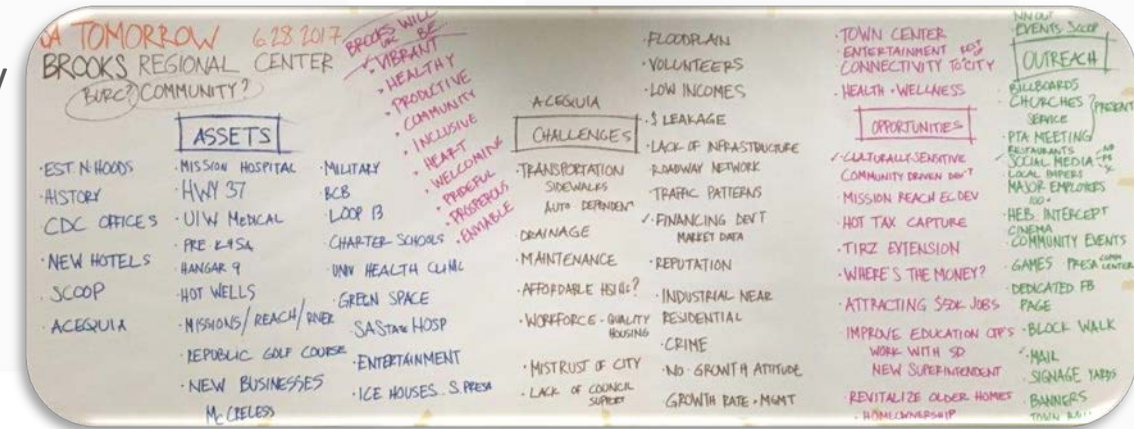 SA TOMORROW 6.28 2017
BROOKS REGIONAL CENTER
BURC? COMMUNITY?
BROOKS WILL
BE
VIBRANT
· HEALTHY
· PRODUCTIVE
· COMMUNITY
· INCLUSIVE
· HEART
· WELCOMING
· PRIDEFUL
· PROSPEROUS
· ENVIABLE
ASSETS
· EST N-HOODS
· HISTORY
· CDC OFFICES
· NEW HOTELS
· SCOOP
· ACEQUIA
· MISSION HOSPITAL
· HWY 37
· UIW MEDICAL
· PRE K 4 SA
· HANGAR 9
· HOT WELLS
· MISSIONS/REACH/RIVER
· REPUBLIC GOLF COURSE
· NEW BUSINESSES
McCRELESS
· MILITARY
BCB
· LOOP 13
· CHARTER SCHOOLS
· UNIV HEALTH CLINIC
· GREEN SPACE
· SA STATE HOSP
· ENTERTAINMENT
· ICE HOUSES.. S. PRESA
ACEQUIA
CHALLENGES
· TRANSPORTATION
SIDEWALKS
AUTO DEPENDENT
· DRAINAGE
· MAINTENANCE
· AFFORDABLE HSING?
· WORKFORCE · QUALITY
HOUSING
· MISTRUST OF CITY
· LACK OF COUNCIL
SUPPORT
· FLOODPLAIN
· VOLUNTEERS
· LOW INCOMES
· $ LEAKAGE
· LACK OF INFRASTRUCTURE
· ROADWAY NETWORK
· TRAFFIC PATTERNS
· FINANCING DEV'T
MARKET DATA
· REPUTATION
· INDUSTRIAL NEAR
RESIDENTIAL
· CRIME
· NO-GROWTH ATTITUDE
· GROWTH RATE · MGMT
· TOWN CENTER
· ENTERTAINMENT
CONNECTIVITY TO CITY
· HEALTH + WELLNESS
OPPORTUNITIES
· CULTURALLY SENSITIVE
COMMUNITY DRIVEN DEV'T
· MISSION REACH EC DEV
· HOT TAX CAPTURE
· TIRZ EXTENSION
· WHERE'S THE MONEY?
· ATTRACTING $50K JOBS
· IMPROVE EDUCATION OPP'S
WORK WITH SD
NEW SUPERINTENDENT
· REVITALIZE OLDER HOMES
· HOMEOWNERSHIP
· EVENTS SCOOP
OUTREACH
· BILLBOARDS
· CHURCHES? PRESENT
SERVICE
· PTA MEETING
RESTAURANTS
· SOCIAL MEDIA
LOCAL
MAJOR EMPLOYERS
100+
· HEB. INTERCEPT
CINEMA
· COMMUNITY EVENTS
· GAMES PRESA COMM CENTER
· DEDICATED FB
PAGE
· BLOCK WALK
· MAIL
· SIGNAGE YARDS
· BANNERS
TOWN HALL